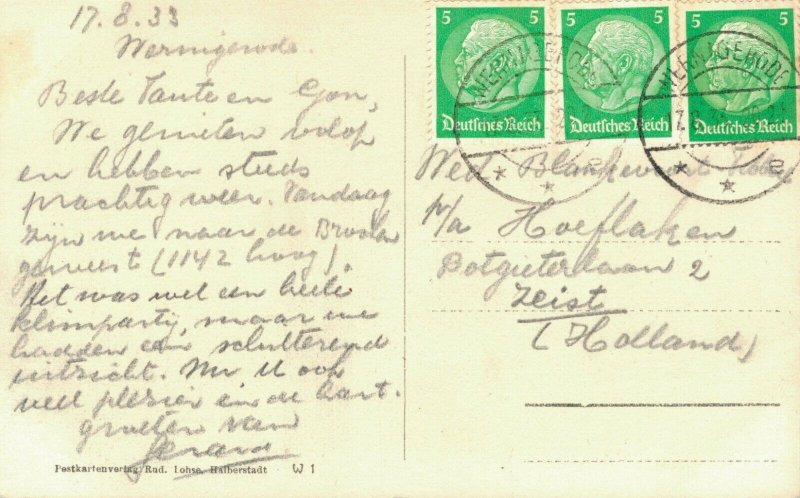 17.8.33
Wernigerode.
Beste Tante en Gon,
We genieten volop
en hebben steeds
prachtig weer. Vandaag
zijn we naar de Brocken
geweest (1142 hoog).
Het was wel een heele
klimpartij, maar we
hadden een schitterend
uitzicht. Nu U ook
veel plezier en de hart.
groeten van
Gerard
Postkartenverlag Rud. Lohse, Halberstadt W 1
5 5 5
Deutsches Reich Deutsches Reich Deutsches Reich
WERNIGERODE WERNIGERODE
Wed. Blankevoort
p/a Hoeflaken
Potgieterlaan 2
Zeist
(Holland)